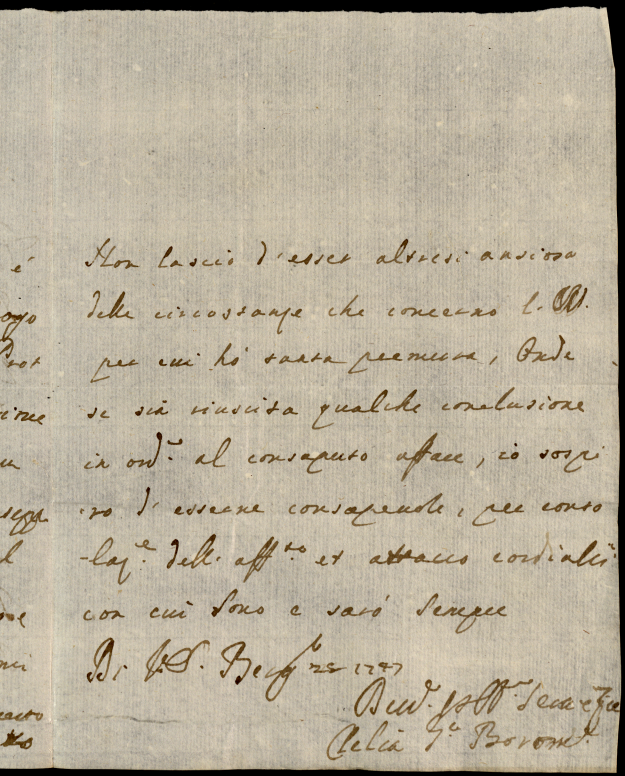 é
ogo
Non lascio d'esser altresi ansiosa
delle circostanze che concerno l.
per cui hó tanta premura, Onde
se sia riuscita qualche conclusione
in ord.e al consaputo affare, io sospi
ro d'esserne consapeuole, per conso
-laz.e dell'aff.to et attacco cordialis.
con cui Sono e saró Sempre
Di V.S. Berg.o 22 1747
Clelia G.a Borom.